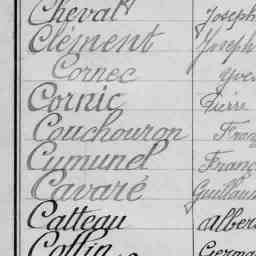 Cheval Joseph
Clément Joseph
Cornec Yves
Cornic Pierre
Couchouron Franç
Cumunel Franç
Cavaré Guillaum
Catteau Alber
Collin Germa